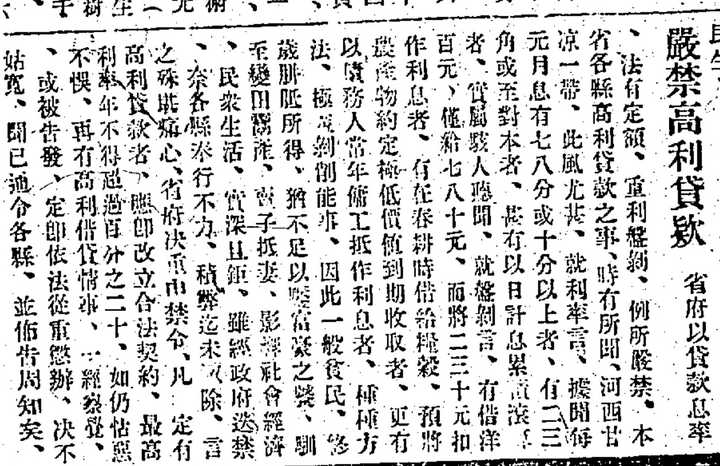 嚴禁高利貸欵
省府以貸款息率
、法有定額、重利盤剝、例所嚴禁、本
省各縣高利貸款之事、時有所聞、河西甘
凉一帶、此風尤甚、就利率言、據聞每
元月息有七八分或十分以上者、有二三
角或至對本者、甚有以日計息累
者、實屬駭人聽聞、就盤剝言、有借洋
百元、僅給七八十元、而將二三十元扣
作利息者、有在春耕時借給糧穀、預將
農產物約定極低價値到期收取者、更有
以債務人常年傭工抵作利息者、種種方
法、極盡剝削能事、因此一般貧民、終
歲胼胝所得、猶不足以饜富豪之慾、馴
至變田鬻產、賣子抵妻、影響社會經濟
、民衆生活、實深且鉅、雖經政府迭禁
、奈各縣奉行不力、積弊迄未除、言
之殊堪痛心、省府決重申禁令、凡定有
高利貸款者、應卽改立合法契約、最高
利率年不得超過百分之二十、如仍怙惡
不悛、再有高利借貸情事、一經察覺、
、或被告發、定卽依法從重懲辦、决不
姑寬、聞已通令各縣、並佈吿周知矣、